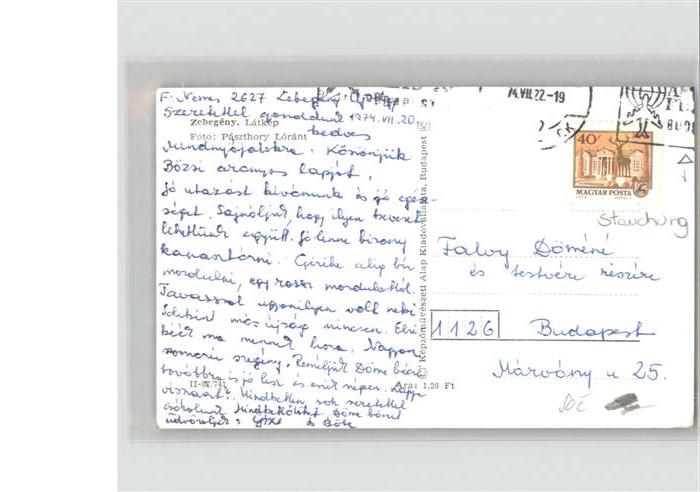 F. Nemes 2627 Zebegény
Szeretettel gondolunk 1974.VII.20.
Zebegény. Látkép
Foto: Pászthory Lóránt
kedves
mindnyájatokra. Köszönjük
Bözsi aranyos lapját,
Jó utazást kívánunk és jó egész-
séget. Sajnáljuk, hogy ilyen keveset
lehettünk együtt. Jó lenne bizony
kanasztázni. alig bír
mozdulni, egy rossz mozdulattól.
Tavasszal ugyanilyen volt neki
más újság nincsen.
ma ment haza. Nagyon
szomorú szegény. Reméljük Döme bácsi
továbbra is jó lesz és
vissza. Mindketten sok szeretettel
csókolunk Mindkettőtöket, Döme bácsit
üdvözöljük: és
II-IV/741
Ára: 1.20 Ft
© Képzőművészeti Alap Kiadóvállalata, Budapest
74.VII.22-19
40f
MAGYAR POSTA
Falvy Döméné
és testvére részére
1126 Budapest
Márvány u 25.